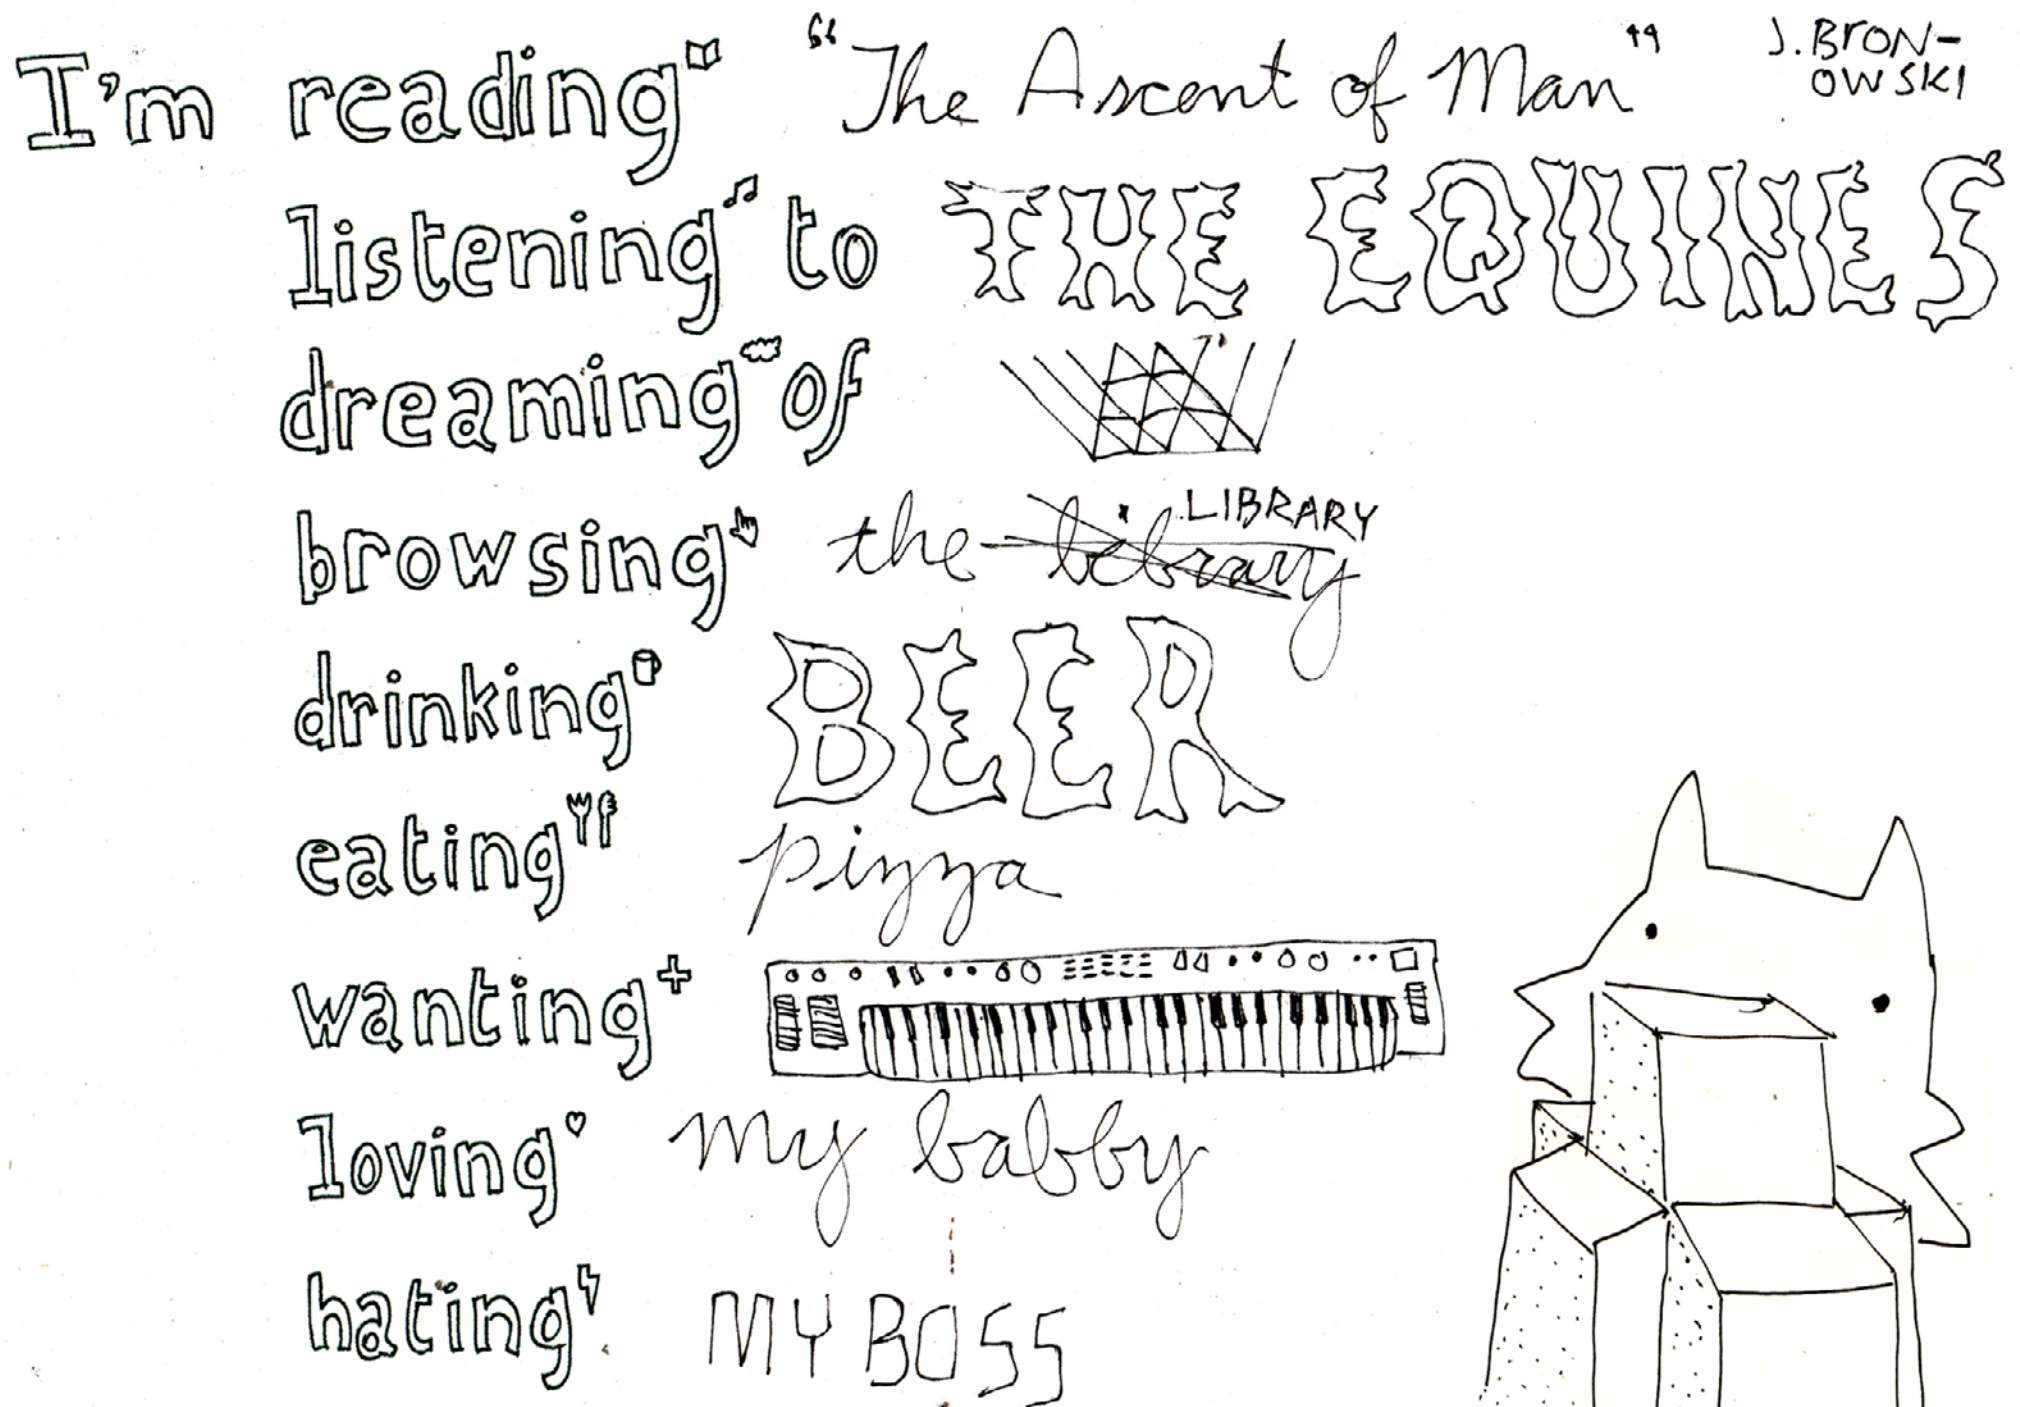 I'm reading "The Ascent of Man" J. BRON-
OWSKI
listening to THE EQUINES
dreaming of
browsing the library LIBRARY
drinking BEER
eating pizza
wanting
loving my babby
hating MY BOSS